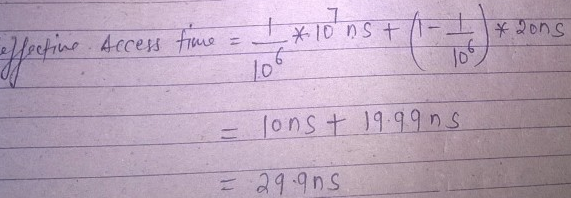 effective Access time = 1/10^6 * 10^7 ns + (1 - 1/10^6) * 20ns
= 10ns + 19.99ns
= 29.9ns